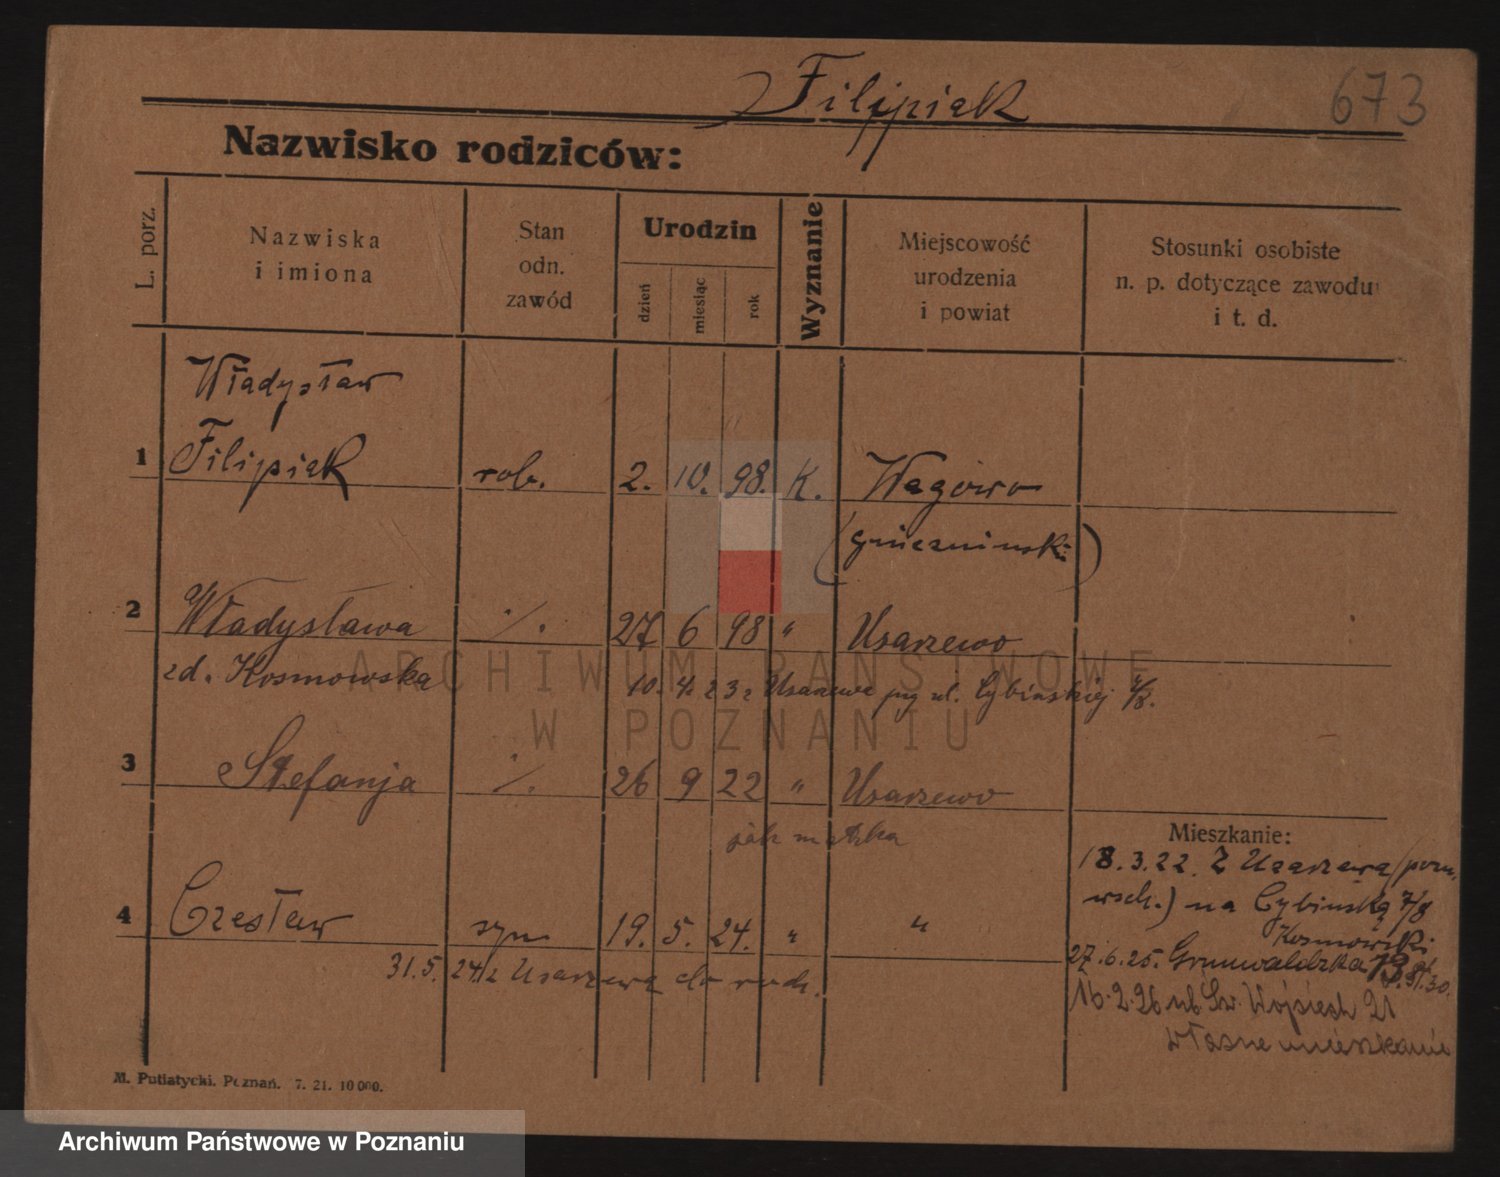 Filipiak 673
Nazwisko rodziców:
L. porz.
Nazwiska
i imiona
Stan
odn.
zawód
Urodzin
dzień
miesiąc
rok
Wyznanie
Miejscowość
urodzenia
i powiat
Stosunki osobiste
n. p. dotyczące zawodu
i t. d.
Władysław
1 Filipiak rob. 2. 10. 98. K. Węgowo
(gnieźnieński)
2 Władysława ./. 27 6 98 " Usarzewo
zd. Kosmowska 10. 4. 23 z Usarzewa ul. Cybińskiej
3 Stefanja ./. 26 9 22 " Usarzewo
jak matka
Mieszkanie:
18.3.22. Z Usarzewa (pozn.
wsch.) na Cybińską 7/8
Kosmowski
4 Czesław syn 19. 5. 24. " "
31.5. 24 z Usarzewa do rodz.
27.6.25. Grunwaldzka 13
16.2.26 Św. Wojciech 21
własne mieszkanie
M. Putiatycki. Poznań. 7. 21. 10 000.
ARCHIWUM PAŃSTWOWE
W POZNANIU
Archiwum Państwowe w Poznaniu